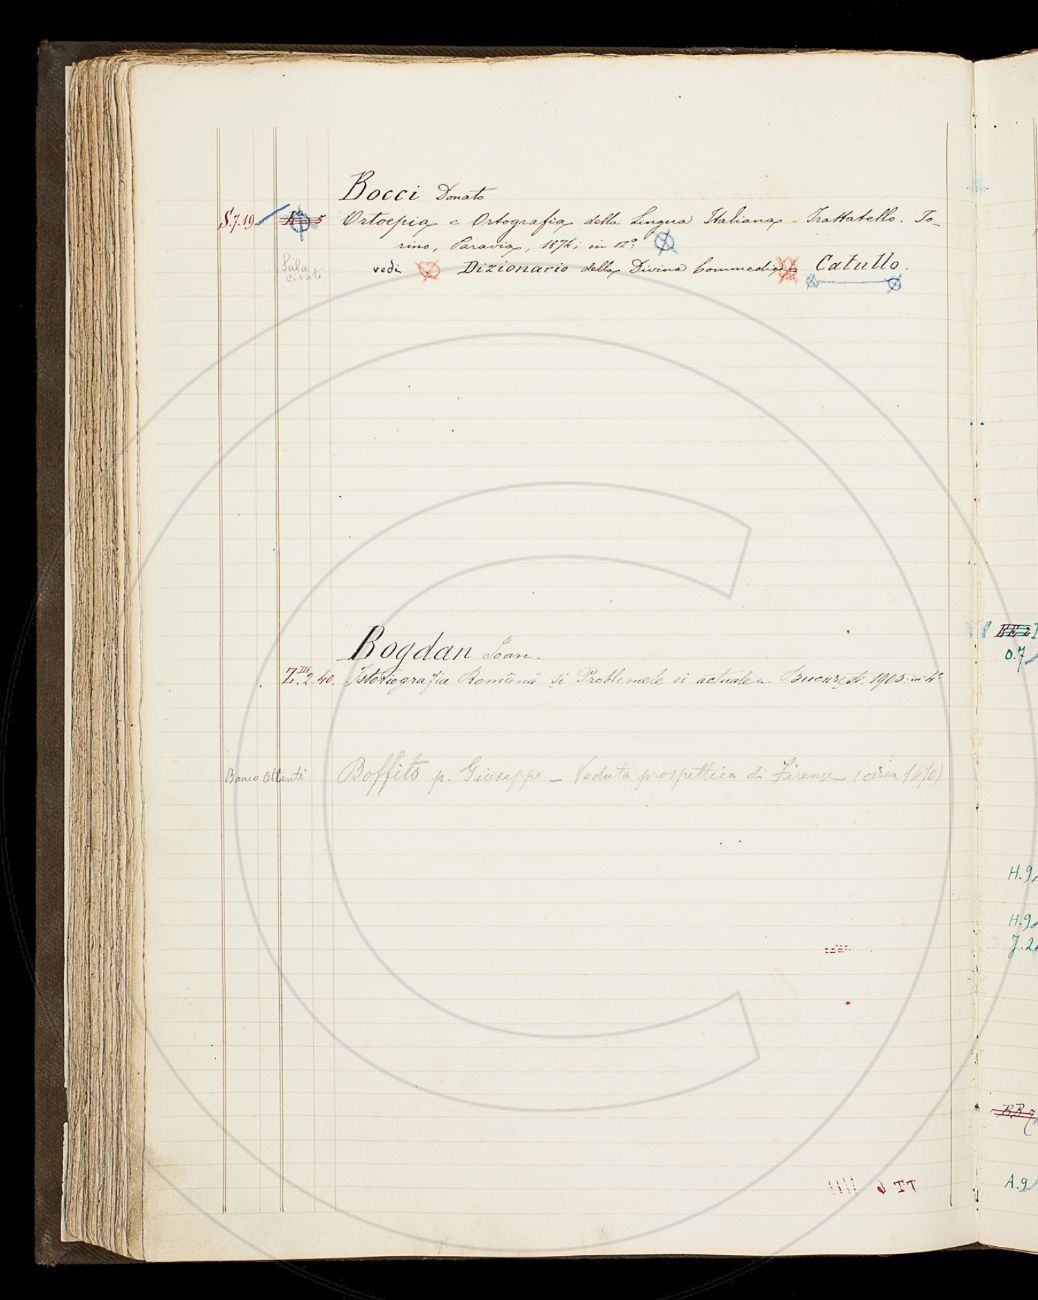 Bocci Donato
S.7.19 Ortoepia e Ortografia della Lingua Italiana - Trattatello. To-
rino, Paravia, 1874; in 12º
Sala citati vedi Dizionario della Divina Commedia Catullo.
Bogdan Ioan.
Z.III.2.40. Istoriografia Română și Problemele ei actuale. Bucureșt. 1905; in 4º
Banco Attenti Boffito p. Giuseppe - Veduta prospettica di Firenze (circa 1470)
EE 2
O.7
H.9
H.9
J.2
BB
A.9